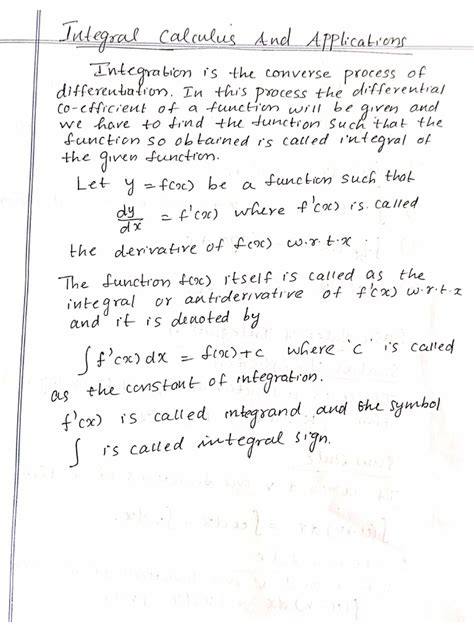 Integral Calculus And Applications
Integration is the converse process of
differentiation. In this process the differential
co-efficient of a function will be given and
we have to find the function such that the
function so obtained is called integral of
the given function.
Let y = f(x) be a function such that
dy/dx = f'(x) where f'(x) is called
the derivative of f(x) w.r.t.x
The function f(x) itself is called as the
integral or antiderivative of f'(x) w.r.t.x
and it is denoted by
∫ f'(x) dx = f(x)+c where 'c' is called
as the constant of integration.
f'(x) is called integrand and the symbol
∫ is called integral sign.